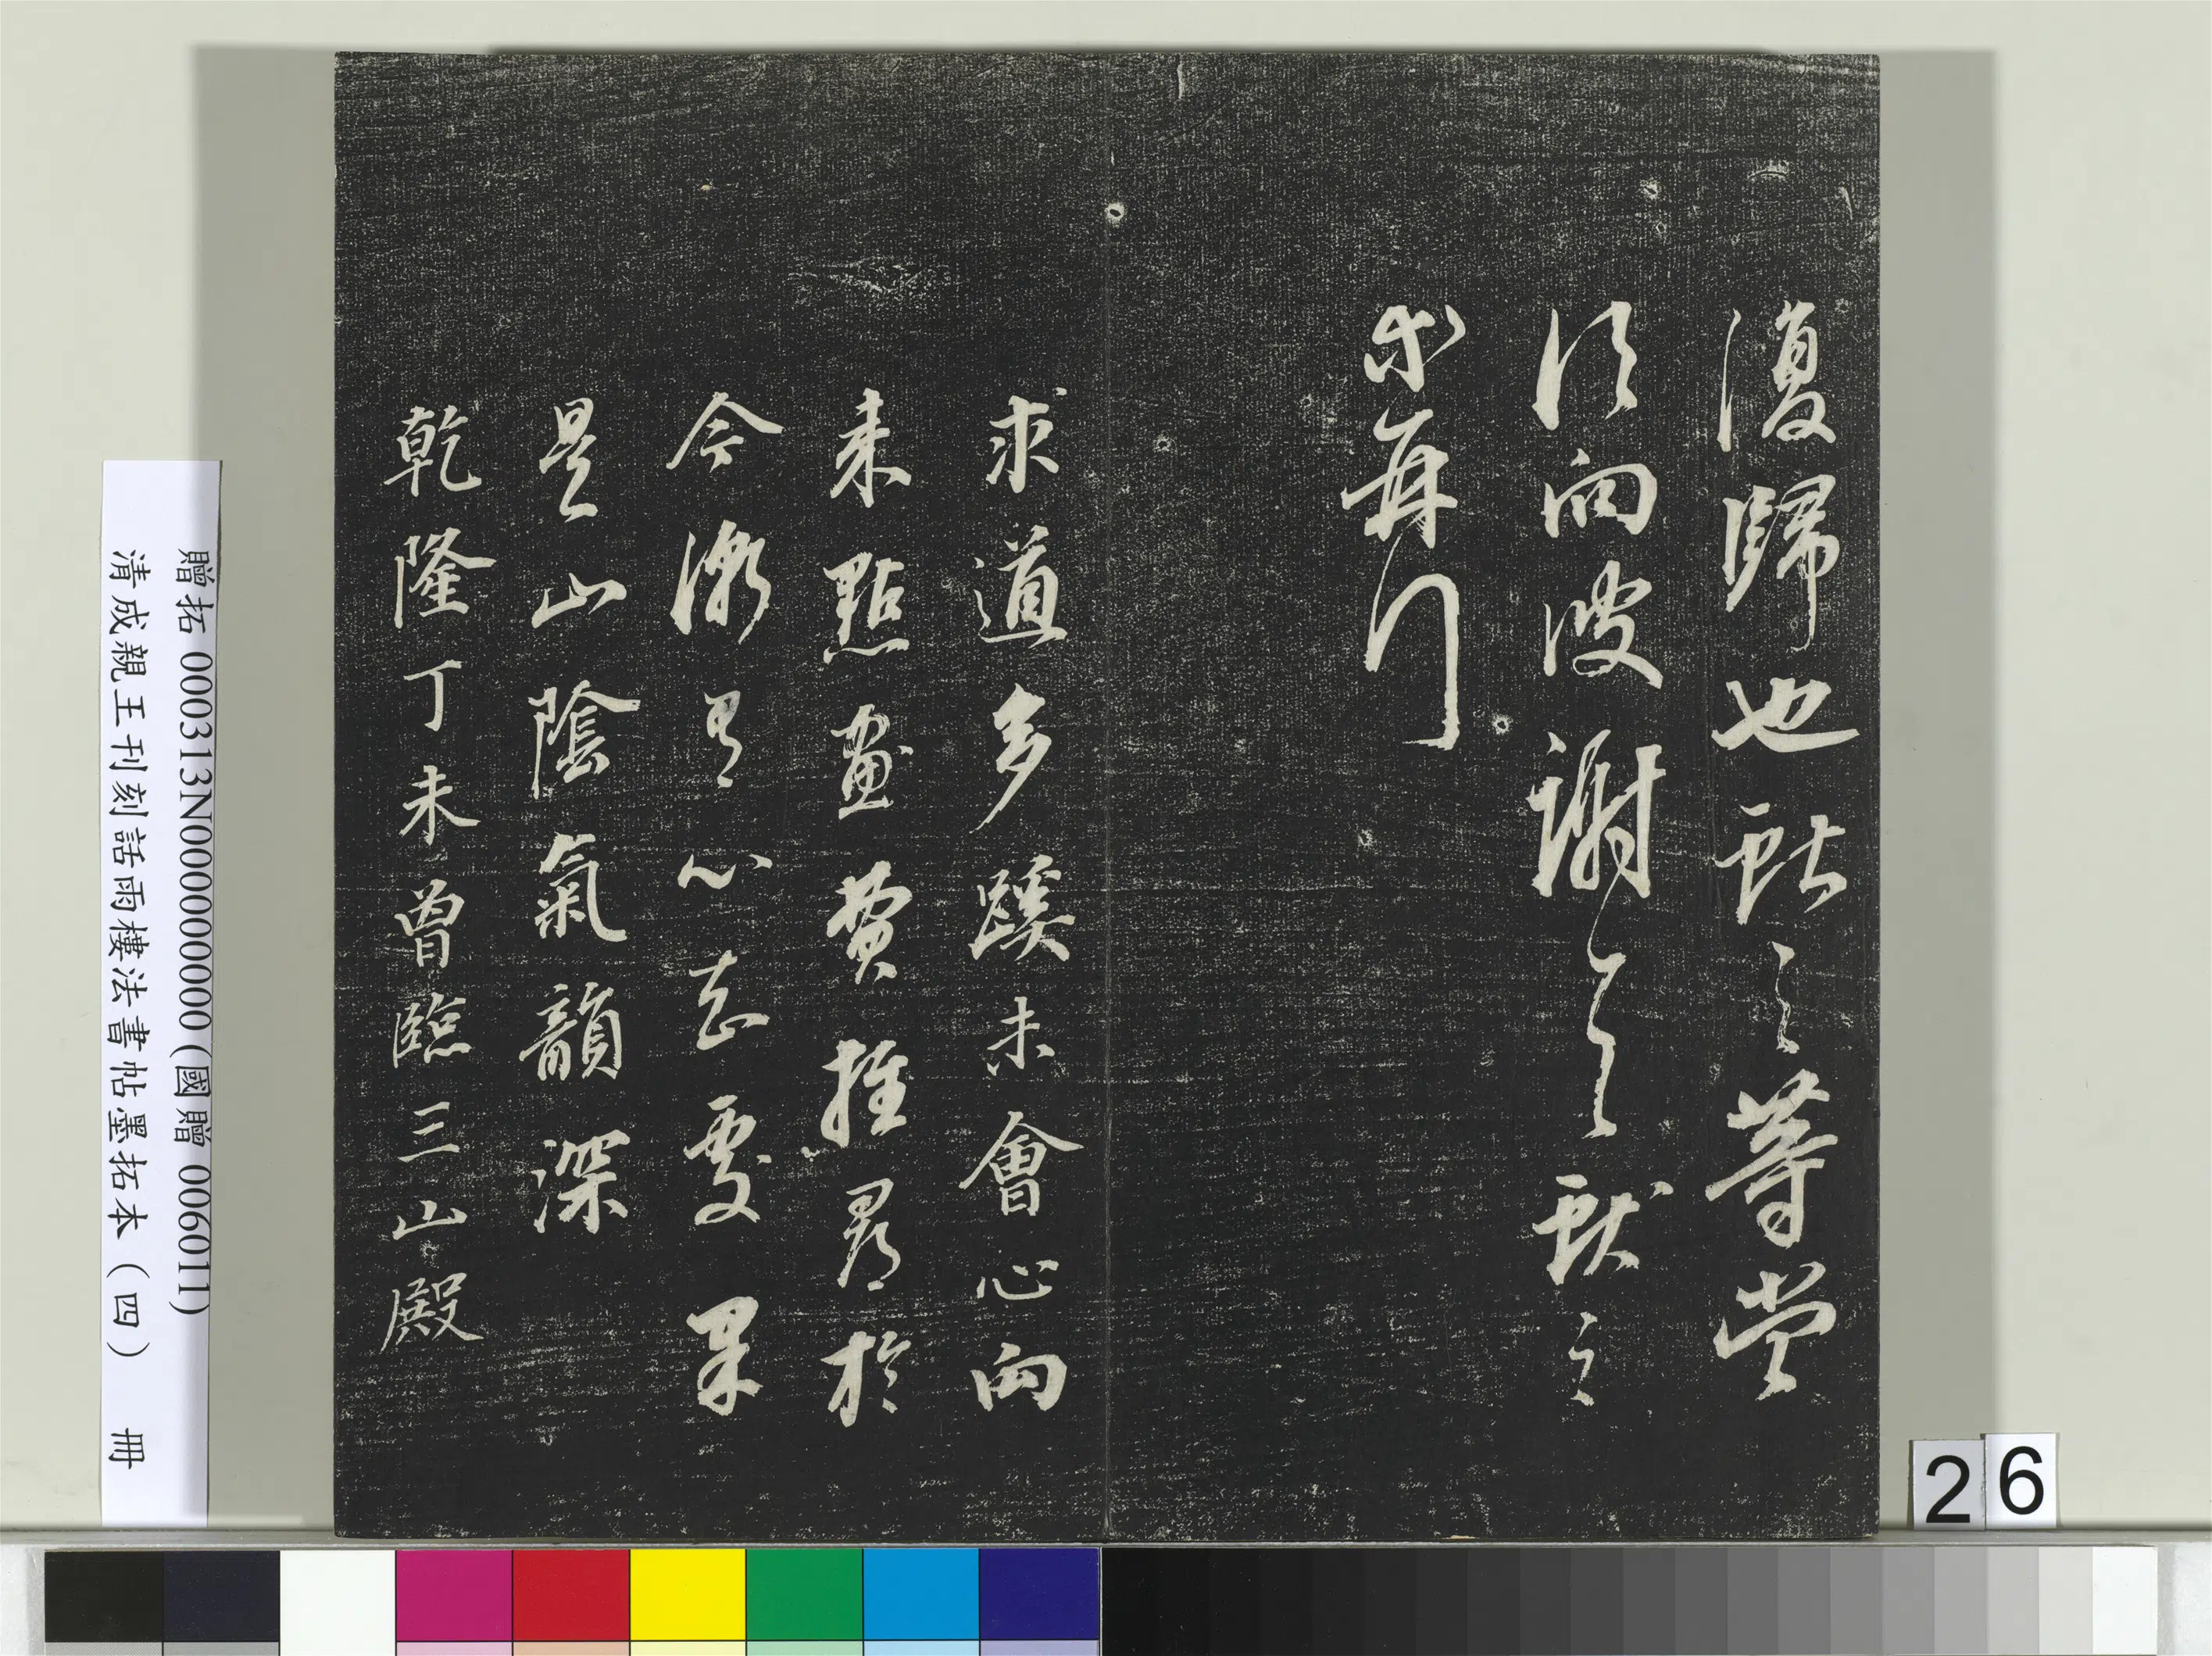 復歸也獻之等當
須向彼謝之獻之
再
求道多蹊未會心向
来點畫費推尋於
今漸得心忘處果
是山陰氣韻深
乾隆丁未曾臨三山殿
贈拓 000313N000000000(國贈 006011)
清成親王刊刻話雨樓法書帖墨拓本(四) 冊
26